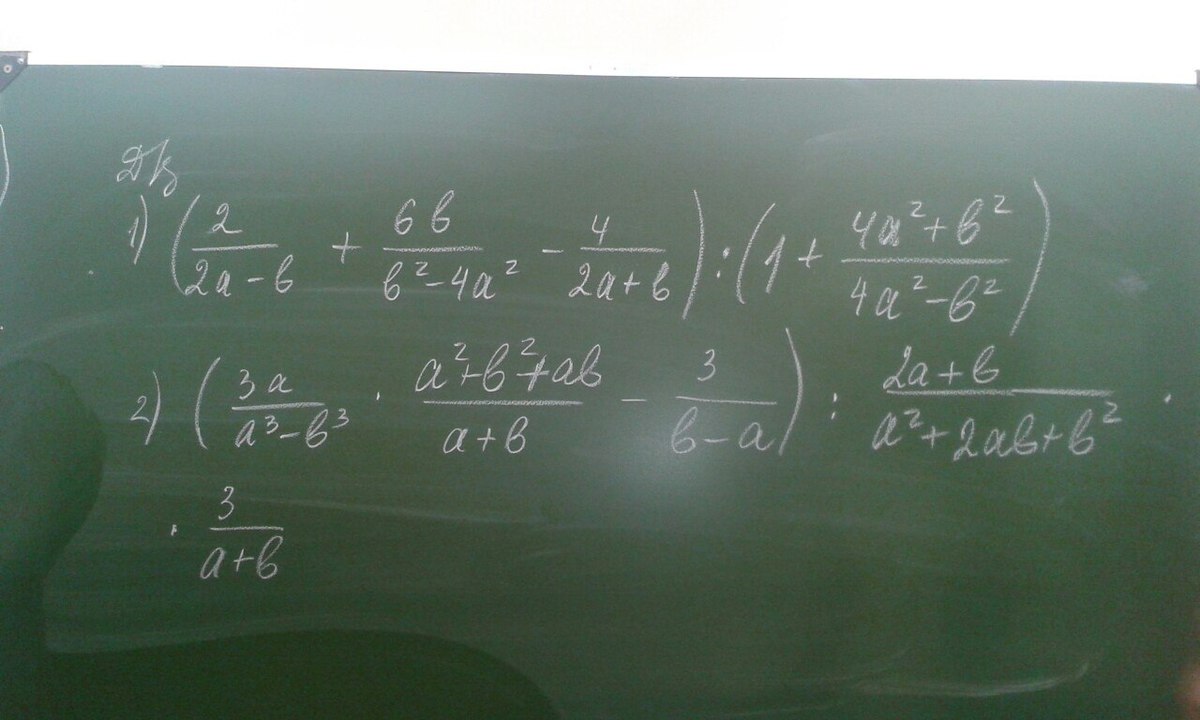 Д/з
1) (2/(2a-b) + 6b/(b²-4a²) - 4/(2a+b)) : (1 + (4a²+b²)/(4a²-b²))
2) (3a/(a³-b³) · (a²+b²+ab)/(a+b) - 3/(b-a)) : (2a+b)/(a²+2ab+b²) ·
· 3/(a+b)